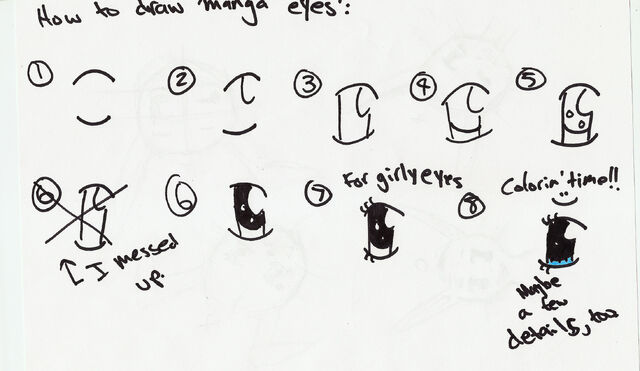 How to draw manga eyes:
1 2 3 4 5
6 6 7 For girly eyes 8 Colorin' time!!
I messed
up.
Maybe
a few
details, too